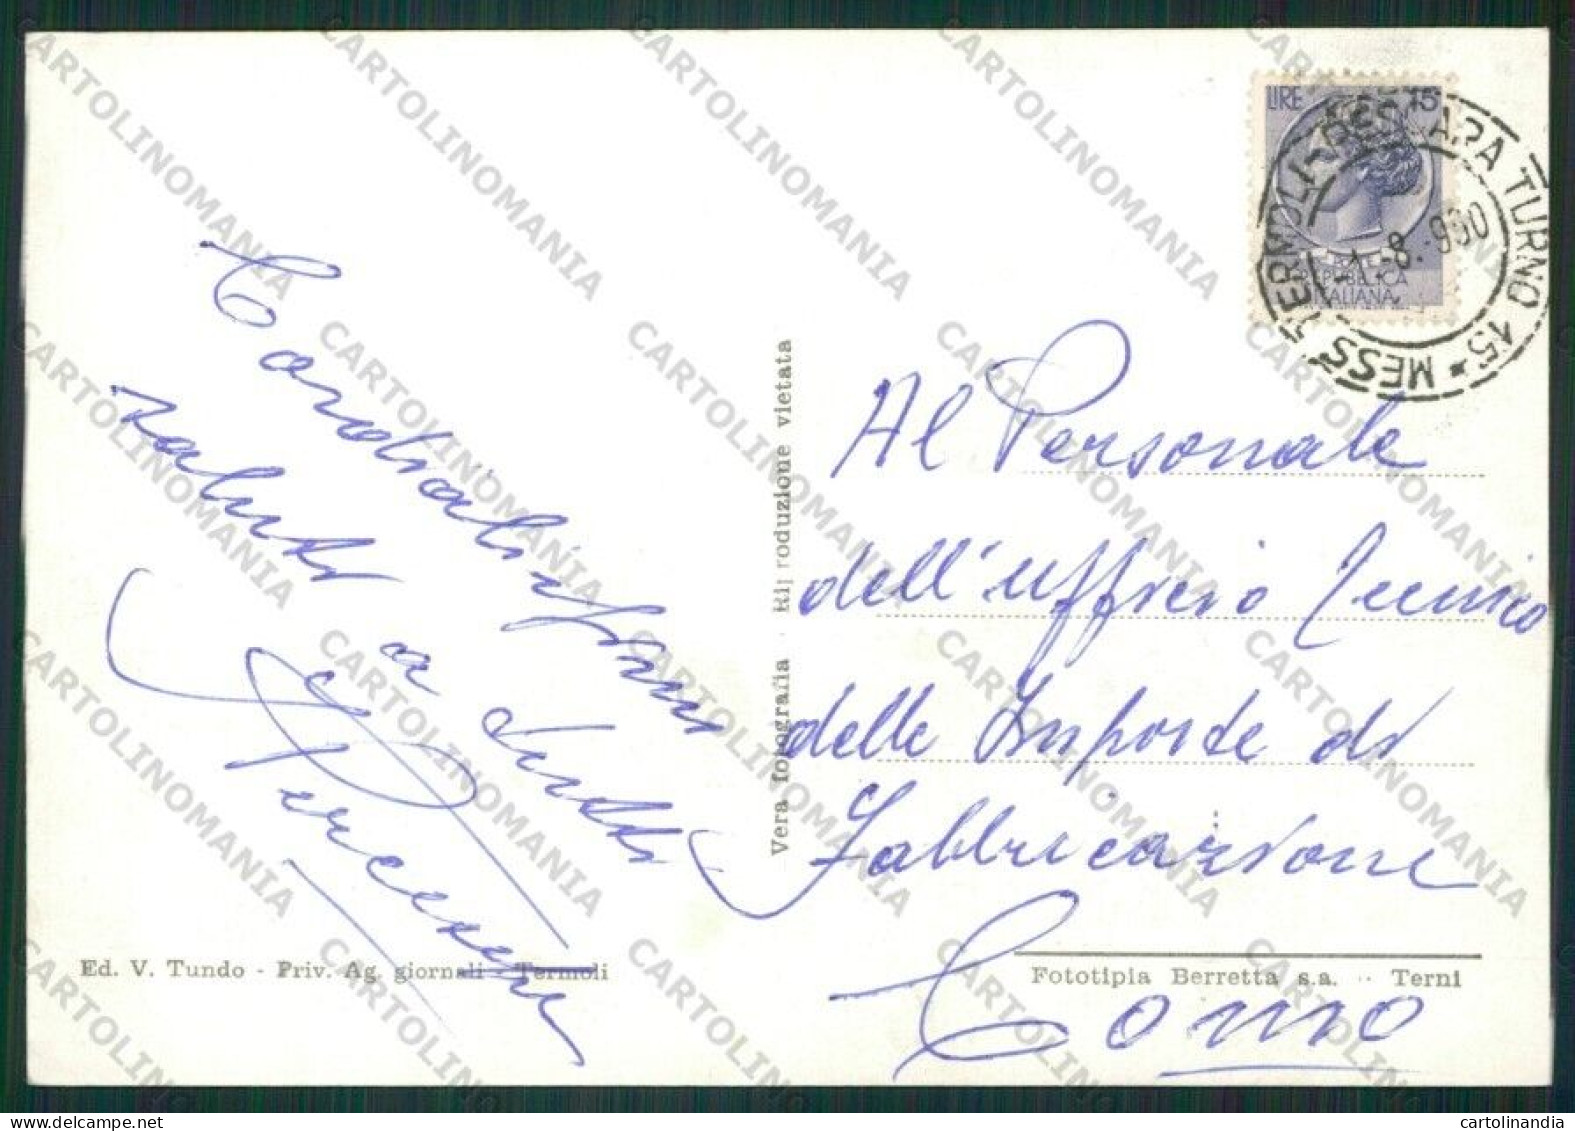 LIRE 15
POSTE
REPUBBLICA
ITALIANA
MESS. TERMOLI-PESCARA TURNO 15 *
-8.960
Cordialissimi
saluti
a tutti
Al Personale
dell'ufficio Tecnico
delle Imposte di
Fabbricazione
Como
Vera fotografia - Riproduzione vietata
Ed. V. Tundo - Priv. Ag. giornali - Termoli
Fototipia Berretta s.a. - Terni
CARTOLINOMANIA
cartolinandia